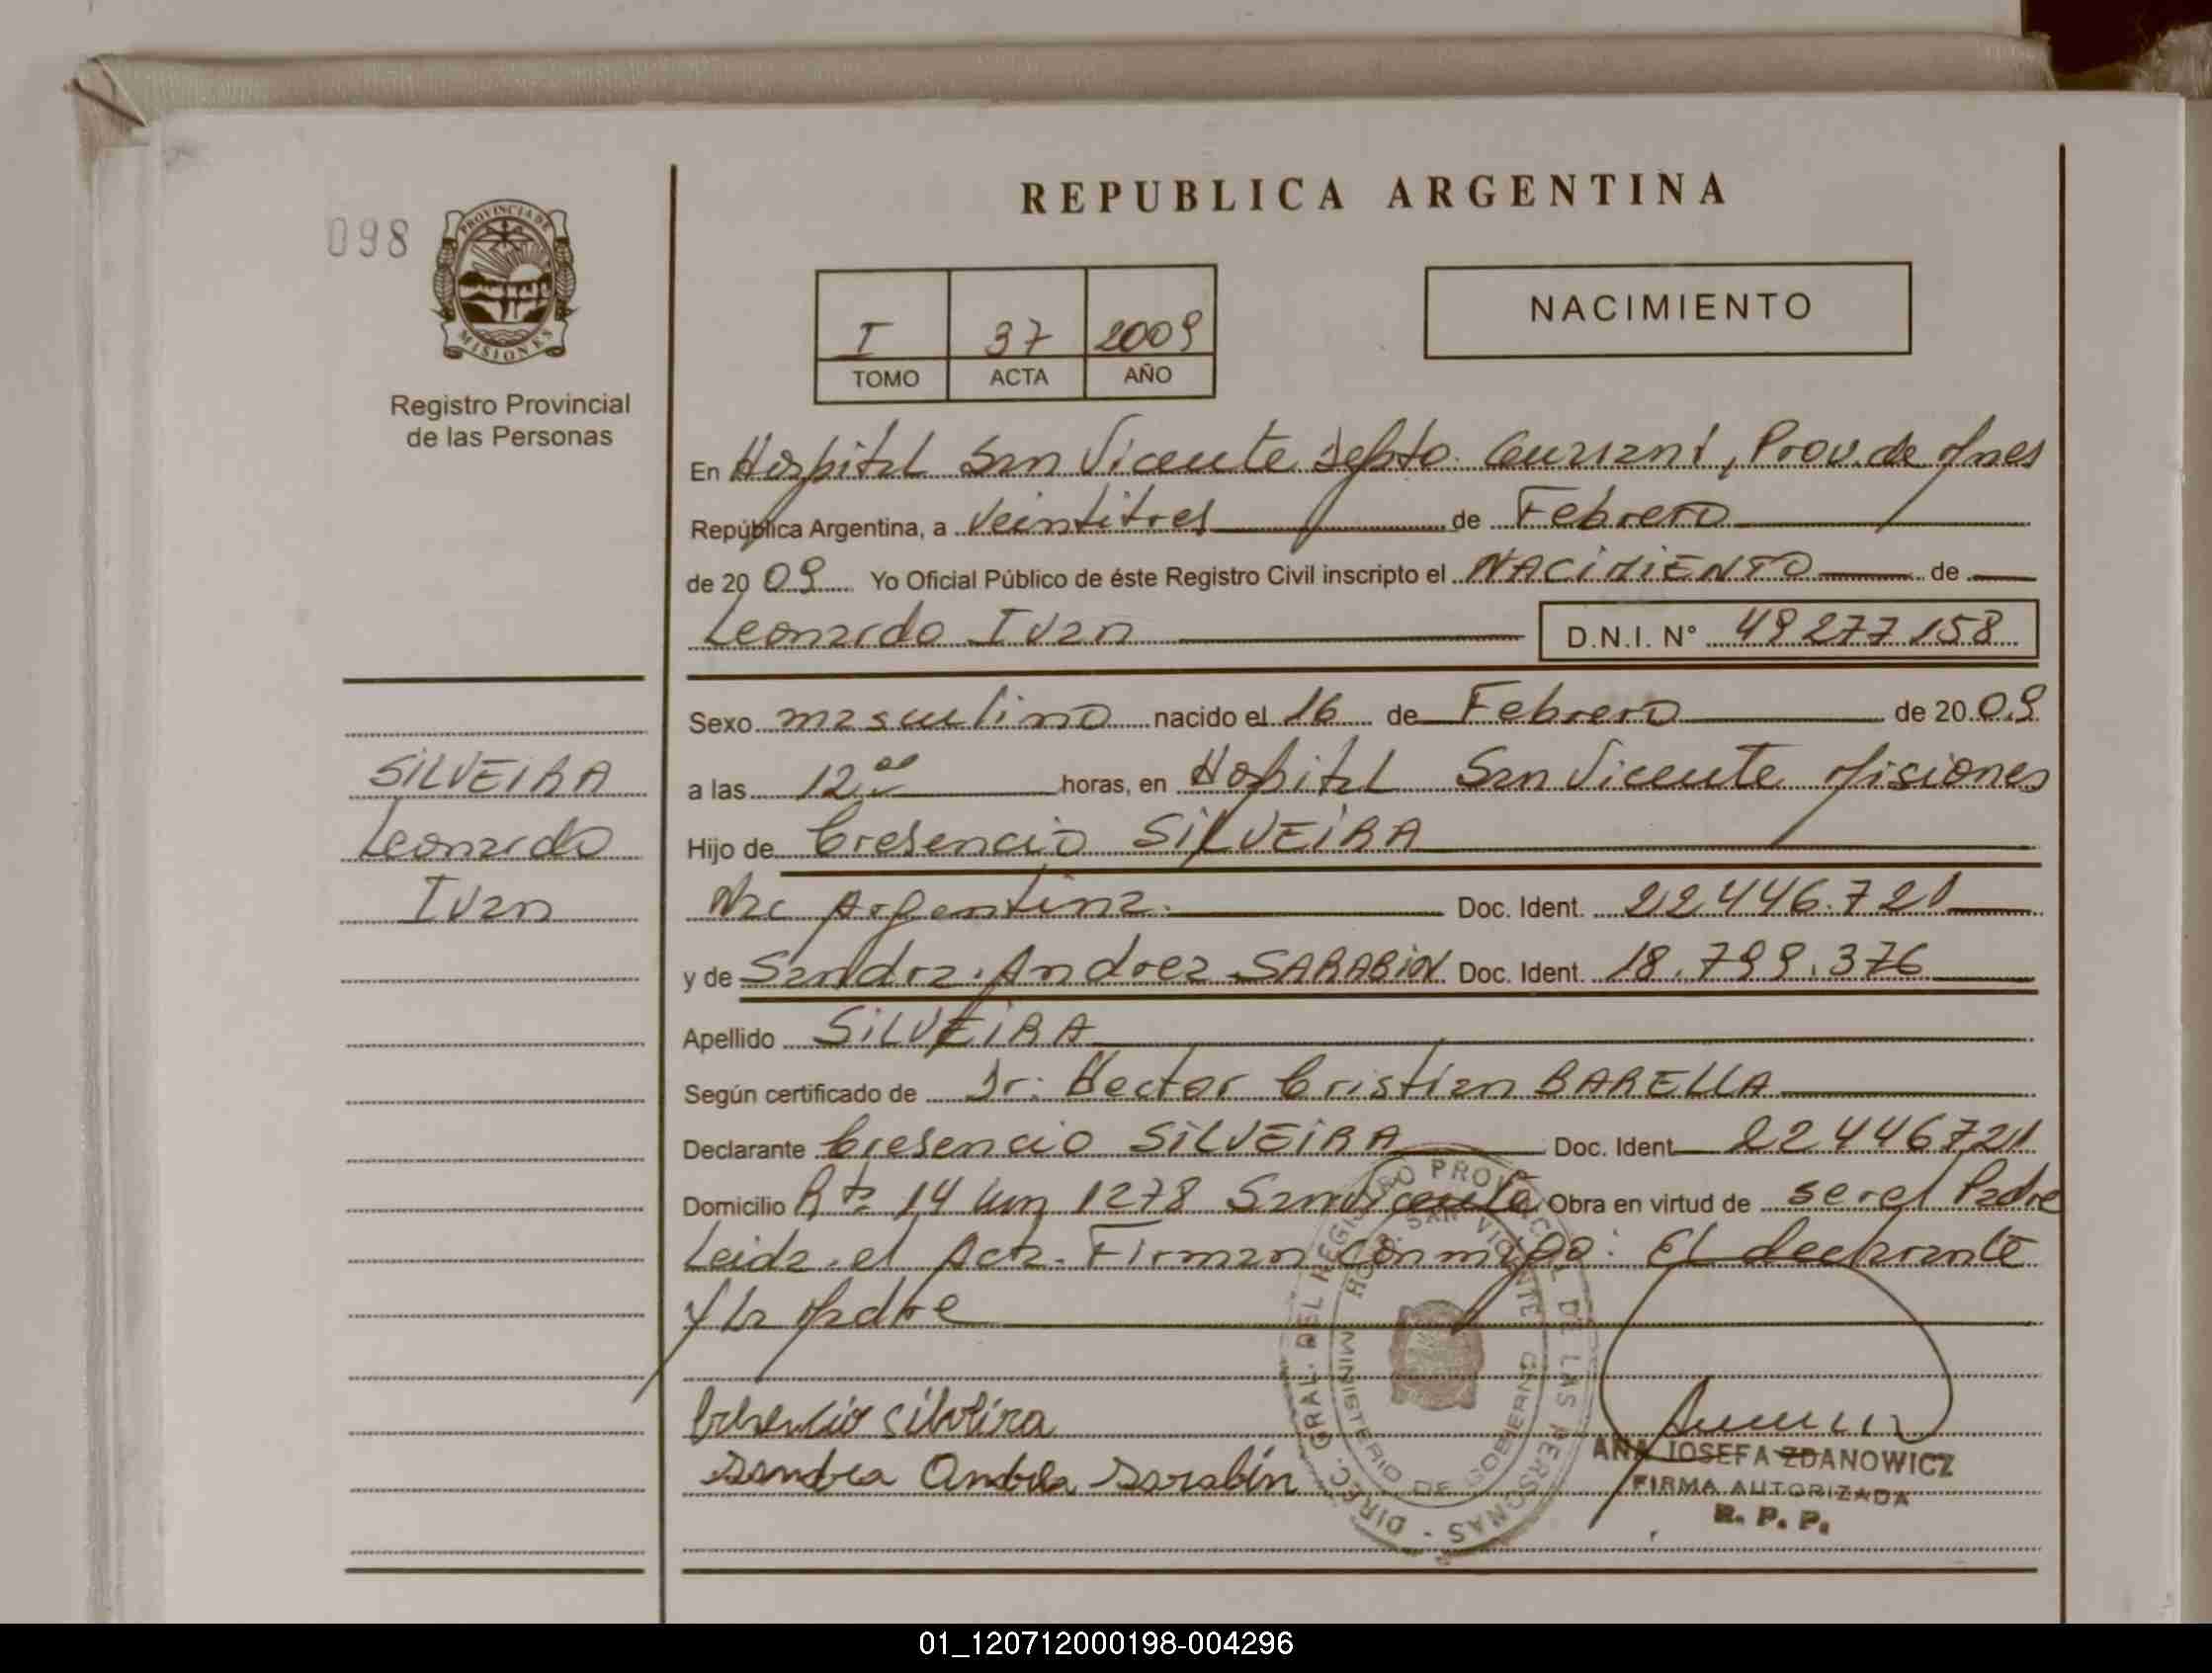 REPUBLICA ARGENTINA
098
PROVINCIA DE
MISIONES
Registro Provincial
de las Personas
I 37 2009
TOMO ACTA AÑO
NACIMIENTO
En Hospital San Vicente Depto. Guarani, Prov. de Mnes
República Argentina, a Veintitres de Febrero
de 20 09 Yo Oficial Público de éste Registro Civil inscripto el NACIMIENTO de
Leonardo Ivan D.N.I. N° 49 277 158
Sexo masculino nacido el 16 de Febrero de 20 09
a las 12 00 horas, en Hospital San Vicente Misiones
Hijo de Cresencio SILVEIRA
Nac Argentina. Doc. Ident. 22.446.721
y de Sandra Andrea SARABIN Doc. Ident. 18.799.376
Apellido SILVEIRA
Según certificado de Dr: Hector Cristian BARELLA
Declarante Cresencio SILVEIRA Doc. Ident 22446721
Domicilio Rta 14 km 1278 San Vicente Obra en virtud de ser el Padre
Leida el Acta. Firman conmigo: El declarante
y la Madre
SILVEIRA
Leonardo
Ivan
Cresencio Silveira
Sandra Andrea Sarabin
DIREC. GRAL. DEL REGISTRO PROVINCIAL DE LAS PERSONAS -
HOSP. SAN VICENTE
MINISTERIO DE GOBIERNO
ANA JOSEFA ZDANOWICZ
FIRMA AUTORIZADA
R. P. P.
01_120712000198-004296